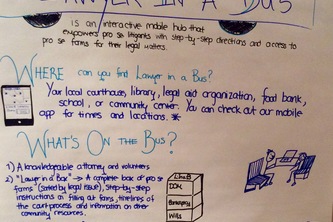 LAWYER IN A BUS
is an interactive mobile hub that
empowers pro se litigants with step-by-step directions and access to
pro se forms for their legal matters.
WHERE can you find Lawyer in a Bus?
Your local courthouse, library, legal aid organization, food bank,
school, or community center. You can check out our mobile
app for times and locations.
WHAT'S ON THE BUS?
1) A knowledgeable attorney and volunteers
2) "Lawyer in a Box" → A complete box of pro se
forms (sorted by legal issue), step-by-step
instructions on filling out forms, timelines
of the court process and information on other
community resources.
Bankruptcy
Wills